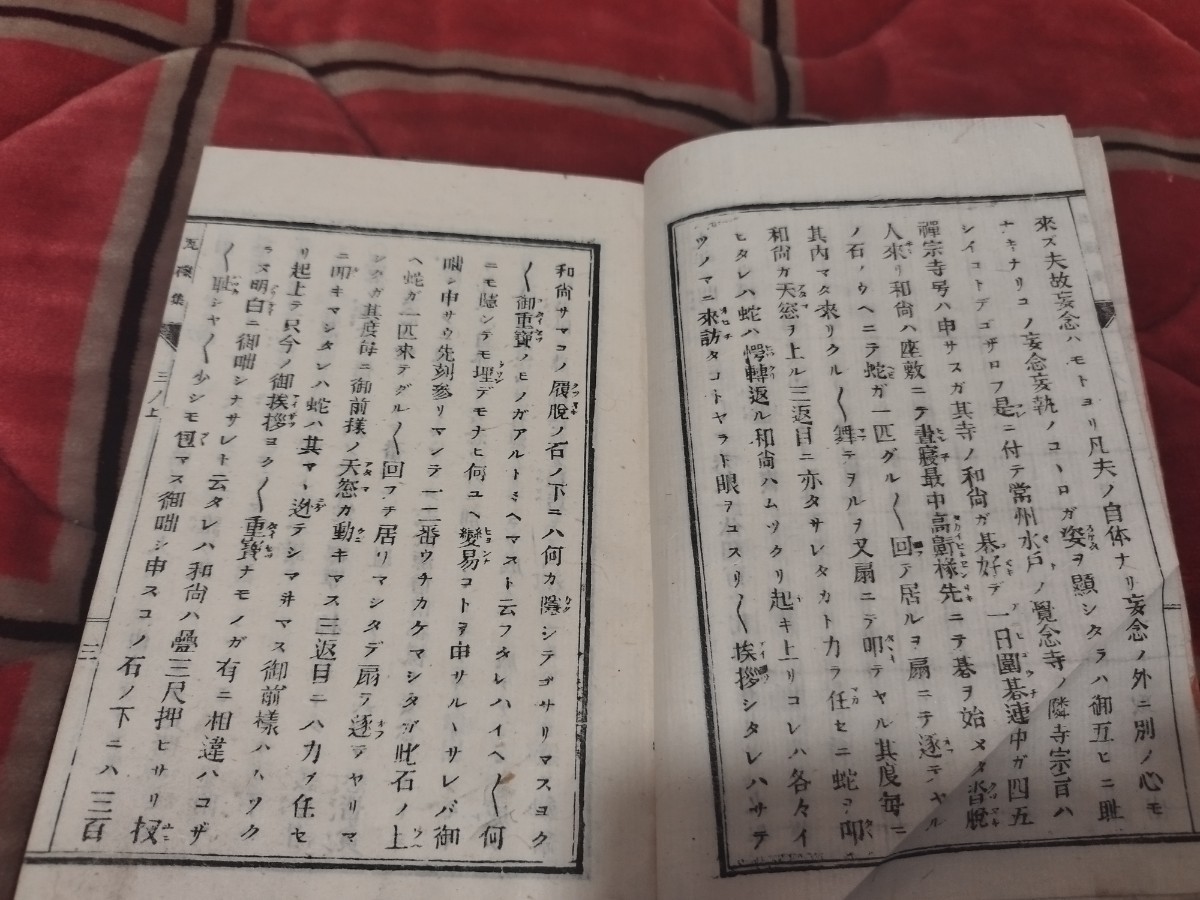 來ズ夫故妄念ハモトヨリ凡夫ノ自体ナリ妄念ノ外ニ別ノ心モ
ナキナリコノ妄念妄執ノコヽロガ姿ヲ顯シタラハ御互ヒニ耻
シイコトデゴザロフ是ニ付テ常州水戸ノ覺念寺ノ隣寺宗旨ハ
禪宗寺号ハ申サスガ其寺ノ和尚ガ碁好デ一日圍碁連中ガ四五
人來リ和尚ハ座敷ニテ晝寢最中高鼾様先ニテ碁ヲ始メタ沓脫
ノ石ノウヘニテ蛇ガ一匹グル〱回テ居ルヲ扇ニテ逐テヤル
其内マタ來リクル〱舞テヲルヲ又扇ニテ叩テヤル其度毎ニ
和尚ガ天窓ヲ上ル三返目ニ亦タサレタカト力ラ任セニ蛇ヲ叩
ヒタレハ蛇ハ愕轉返ル和尚ハムツクリ起キ上リコレハ各々イ
ツノマニ來訪タコトヤラト眼ヲコスリ〱挨拶シタレハサテ
和尚サマコノ履脫ノ石ノ下ニハ何カ隱シテゴサリマスヨク
〱御重寶ノモノガアルトミヘマスト云フタレハイヘ〱何
ニモ隱シテモ埋デモナヒ何ユヘ變易コトヲ申サルヽサレバ御
咄シ申サウ先刻參リマシテ一二番ウチカケマシタガ此石ノ上
ヘ蛇ガ一匹來テグル〱回フチ居リマシタデ扇ヲ逐テヤリマ
シタガ其度毎ニ御前様ノ天窓カ動キマス三返目ニハ力ヲ任セ
ニ叩キマシタレハ蛇ハ其マヽ迯テシマヰマス御前様ハムツク
リ起上テ只今ノ御挨拶ヨク〱重寶ナモノガ有ニ相違ハコザ
ラヌ明白ニ御咄シナサレト云タレハ和尚ハ疊三尺押ヒサリ扨
〱耻シヤ〱少シモ包マス御咄シ申スコノ石ノ下ニハ三百
集
三ノ上
三